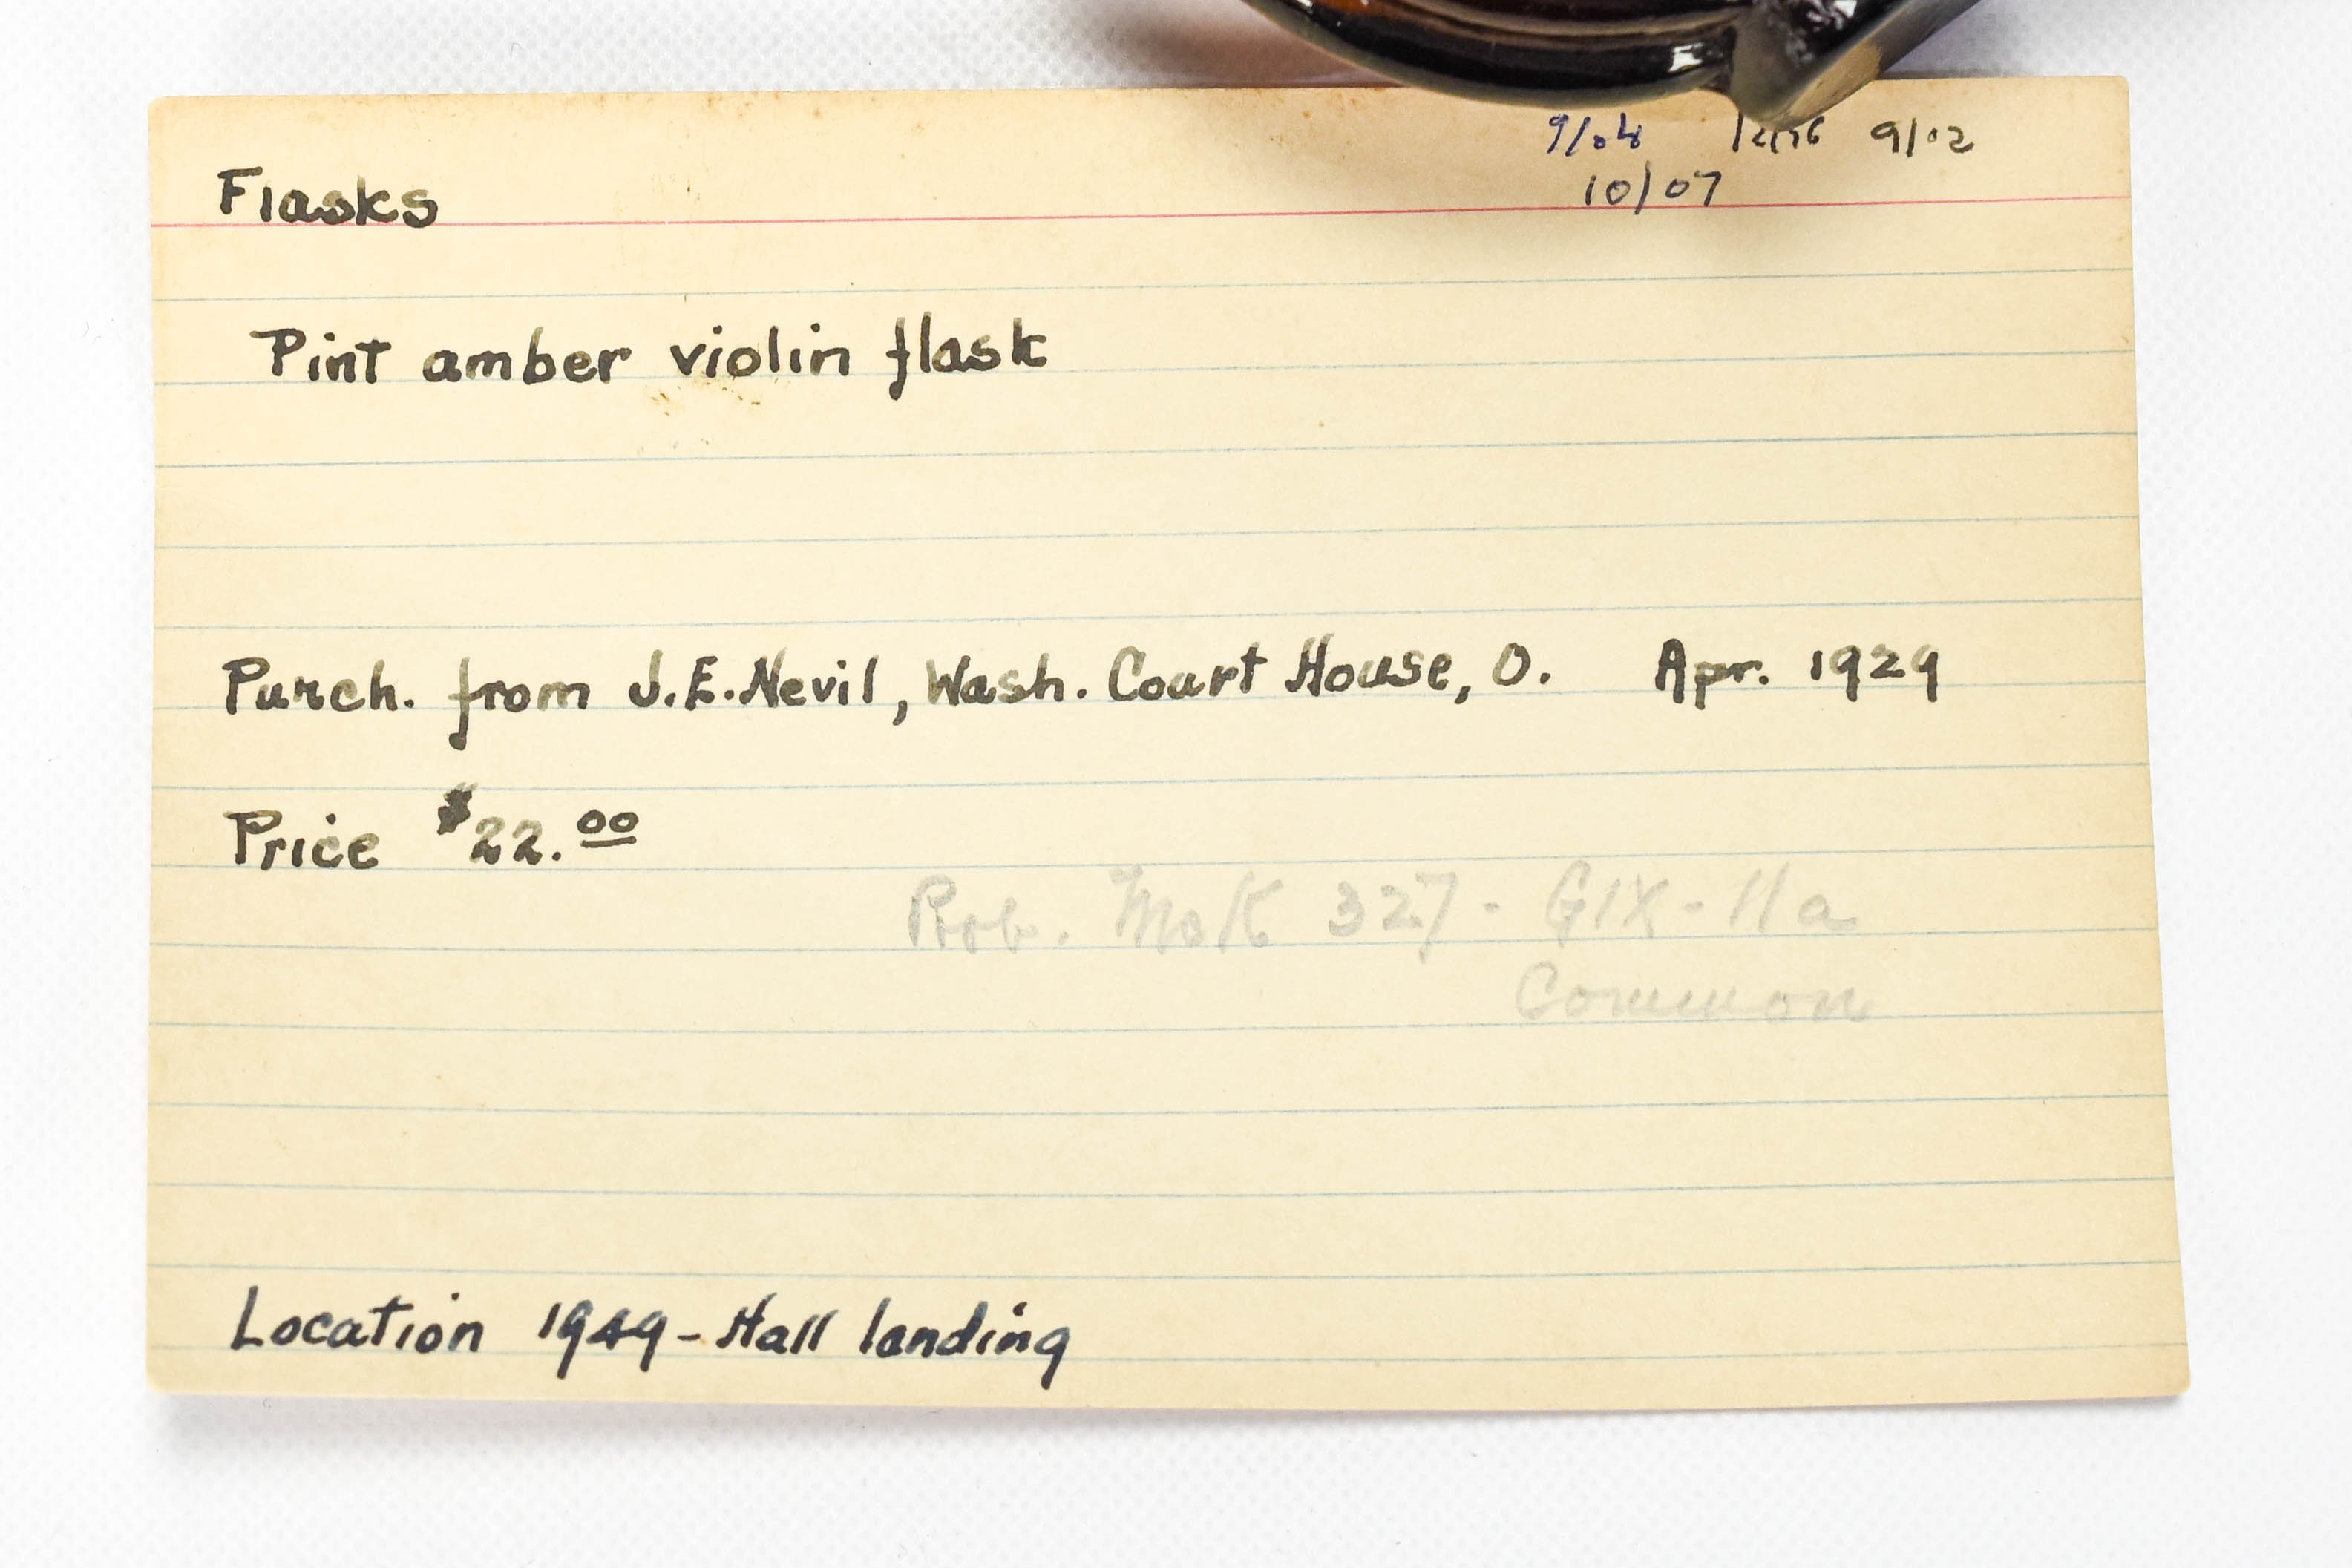 9/04 12/76 9/02
10/07
Flasks
Pint amber violin flask
Purch. from J.E.Nevil, Wash. Court House, O. Apr. 1929
Price $22.00
Rob. McK 327 - GIX - 11a
Common
Location 1949 - Hall landing